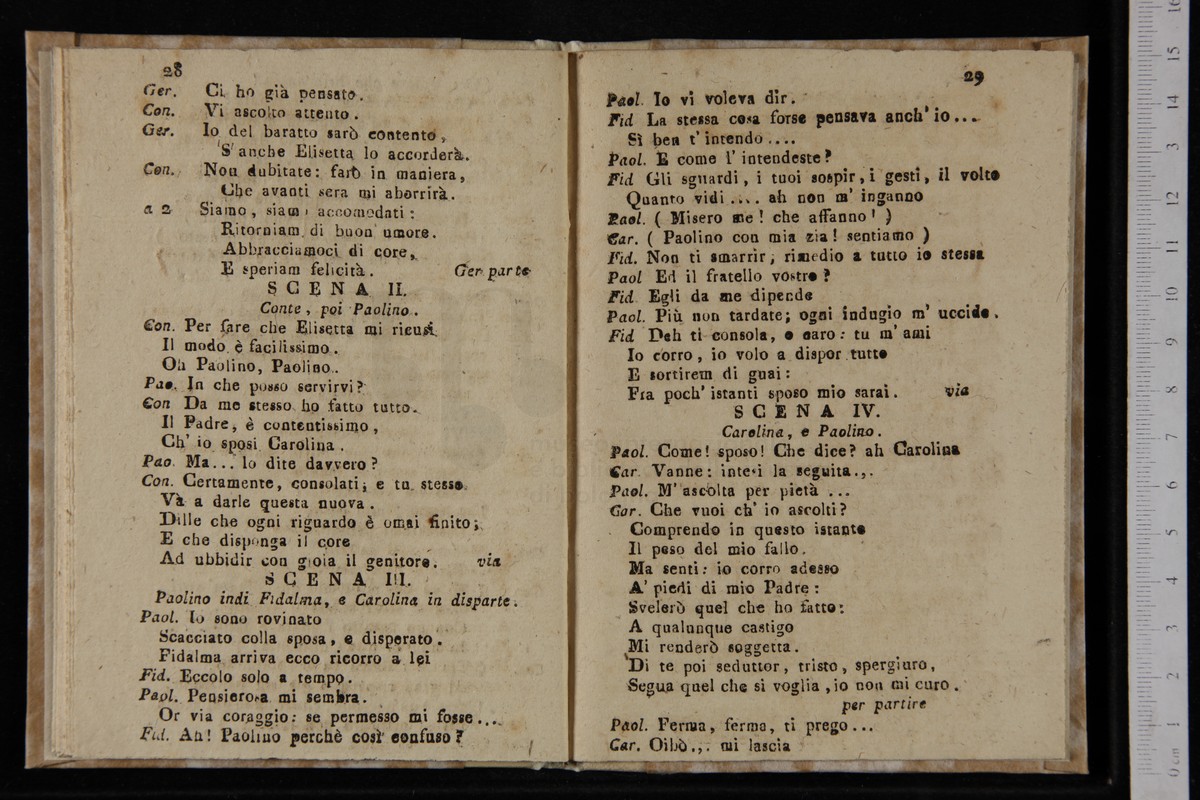 28
Ger. Ci ho già pensato.
Con. Vi ascolto attento.
Ger. Io del baratto sarò contento,
S' anche Elisetta lo accorderà.
Con. Non dubitate: farò in maniera,
Che avanti sera mi aborrirà.
a 2 Siamo, siamo accomodati:
Ritorniam di buon' umore.
Abbracciamoci di core,
E speriam felicità. Ger parte
SCENA II.
Conte, poi Paolino.
Con. Per fare che Elisetta mi ricusi
Il modo è facilissimo.
Oh Paolino, Paolino..
Pao. In che posso servirvi?
Con Da me stesso ho fatto tutto.
Il Padre, è contentissimo,
Ch' io sposi Carolina.
Pao. Ma... lo dite davvero?
Con. Certamente, consolati; e tu stesso
Và a darle questa nuova.
Dille che ogni riguardo è omai finito;
E che disponga il core
Ad ubbidir con gioia il genitore. via
SCENA III.
Paolino indi Fidalma, e Carolina in disparte.
Paol. Io sono rovinato
Scacciato colla sposa, e disperato.
Fidalma arriva ecco ricorro a lei
Fid. Eccolo solo a tempo.
Paol. Pensierosa mi sembra.
Or via coraggio: se permesso mi fosse...
Fid. Ah! Paolino perchè così confuso?
29
Paol. Io vi voleva dir.
Fid La stessa cosa forse pensava anch' io...
Sì ben t' intendo....
Paol. E come l' intendeste?
Fid Gli sguardi, i tuoi sospir, i gesti, il volto
Quanto vidi.... ah non m' inganno
Paol. ( Misero me! che affanno! )
Car. ( Paolino con mia zia! sentiamo )
Fid. Non ti smarrir; rimedio a tutto io stessa
Paol Ed il fratello vostro?
Fid. Egli da me dipende
Paol. Più non tardate; ogni indugio m' uccide.
Fid Deh ti consola, o caro: tu m' ami
Io corro, io volo a dispor tutto
E sortirem di guai:
Fra poch' istanti sposo mio sarai. via
SCENA IV.
Carolina, e Paolino.
Paol. Come! sposo! Che dice? ah Carolina
Car. Vanne: intesi la seguita.,.
Paol. M' ascolta per pietà ...
Car. Che vuoi ch' io ascolti?
Comprendo in questo istante
Il peso del mio fallo.
Ma senti: io corro adesso
A' piedi di mio Padre:
Svelerò quel che ho fatto:
A qualunque castigo
Mi renderò soggetta.
Di te poi seduttor, tristo, spergiuro,
Segua quel che si voglia, io non mi curo.
per partire
Paol. Ferma, ferma, ti prego...
Car. Oibò.,. mi lascia
0 cm 1 2 3 4 5 6 7 8 9 10 11 12 3 14 15 16